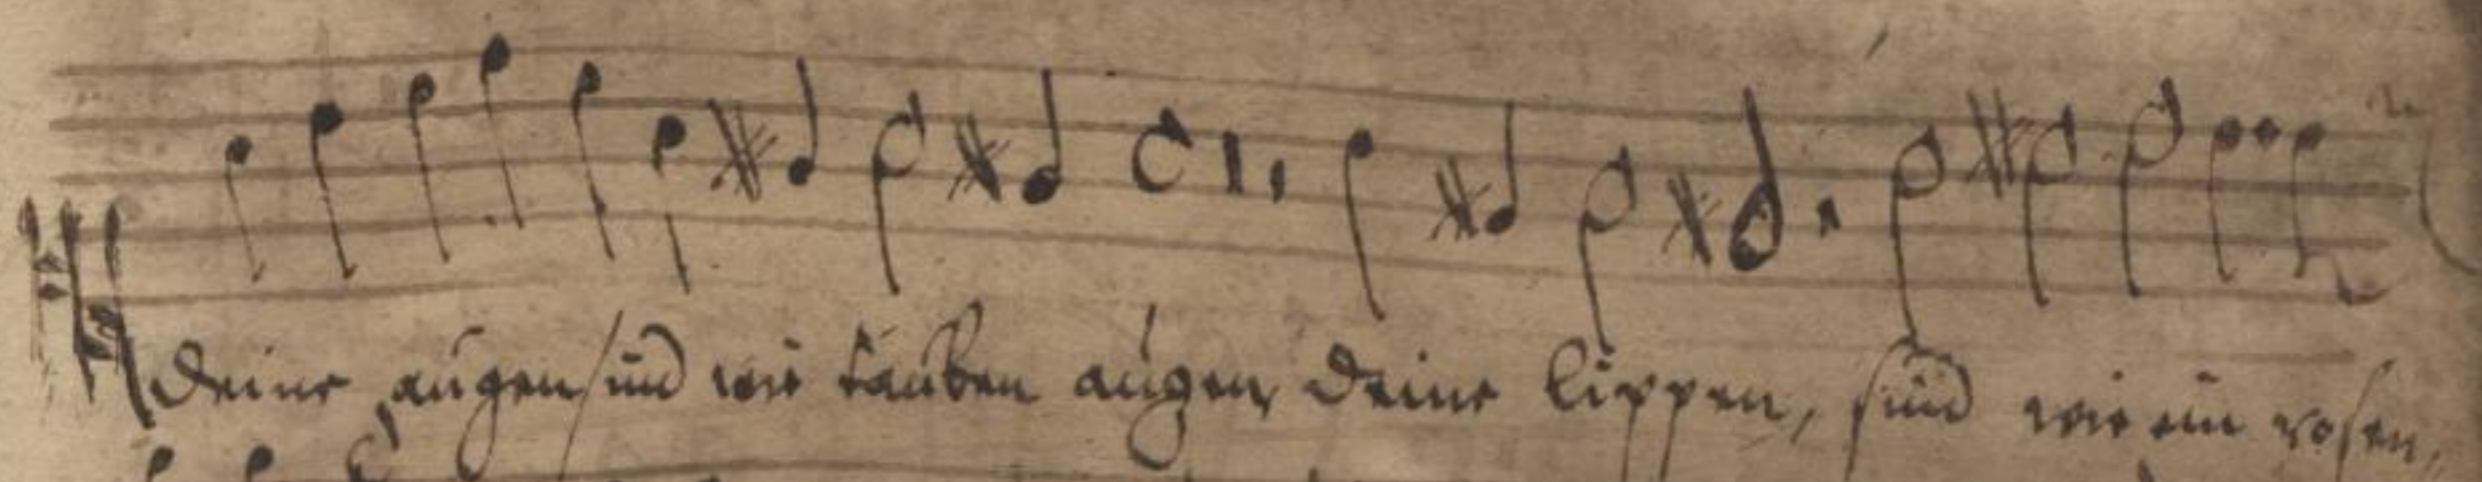 Deine augen sind wie tauben augen, Deine lippen, sind wie ein rosen,